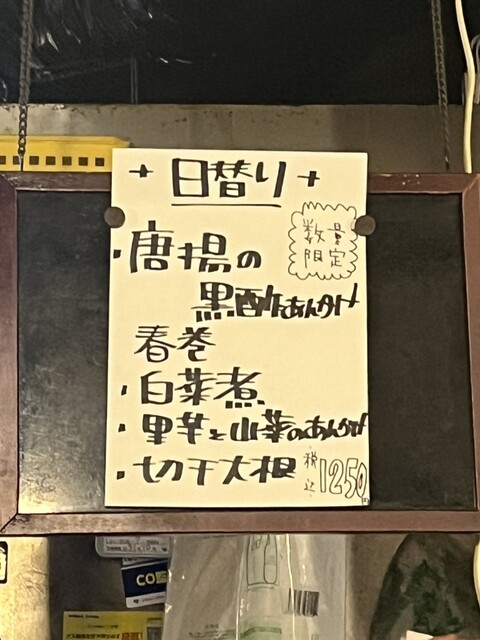 + 日替り +
数量
限定
・唐揚の
黒酢あんかけ
春巻
・白菜煮
・里芋と山菜のあんかけ
・切干大根
税込 1250円
CO